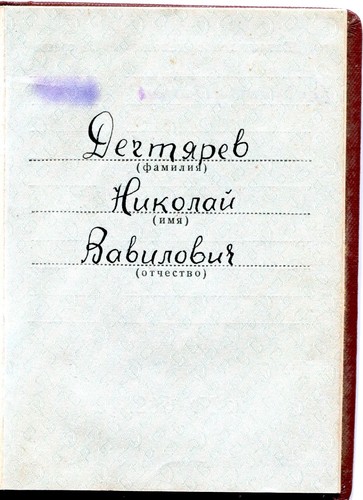 Дегтярев
(фамилия)
Николай
(имя)
Вавилович
(отчество)